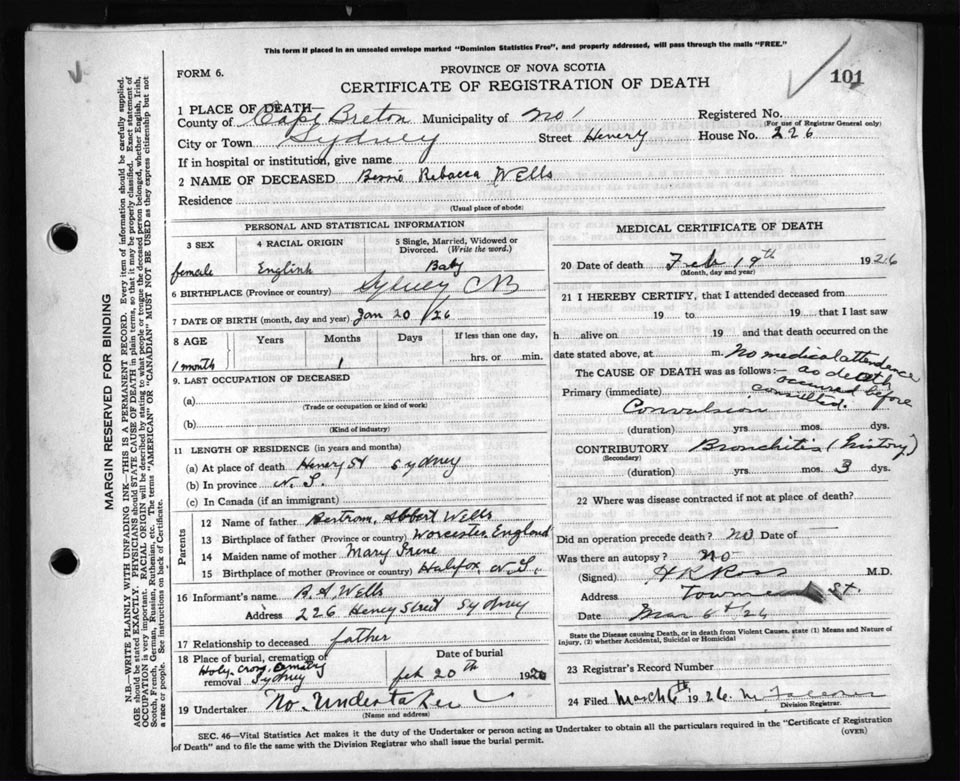 This form if placed in an unsealed envelope marked "Dominion Statistics Free", and properly addressed, will pass through the mails "FREE."
FORM 6.
PROVINCE OF NOVA SCOTIA
CERTIFICATE OF REGISTRATION OF DEATH
101
1 PLACE OF DEATH—
County of Cape Breton Municipality of No! Registered No.
(For use of Registrar General only)
City or Town Sydney Street Henery House No. 226
If in hospital or institution, give name
2 NAME OF DECEASED Bessie Rebacca Wells
Residence
(Usual place of abode)
PERSONAL AND STATISTICAL INFORMATION
3 SEX 4 RACIAL ORIGIN 5 Single, Married, Widowed or Divorced. (Write the word.)
female English Baby
6 BIRTHPLACE (Province or country) Sydney CB
7 DATE OF BIRTH (month, day and year) Jan 20 / 26
8 AGE Years Months Days If less than one day,
1 month 1 hrs. or min.
9. LAST OCCUPATION OF DECEASED
(a)
(Trade or occupation or kind of work)
(b)
(Kind of industry)
11 LENGTH OF RESIDENCE (in years and months)
(a) At place of death Henery St Sydney
(b) In province N.S.
(c) In Canada (if an immigrant)
Parents
12 Name of father Bertram Abbert Wells
13 Birthplace of father (Province or country) Worcester, England
14 Maiden name of mother Mary Irene
15 Birthplace of mother (Province or country) Halifax, N.S.
16 Informant's name B. A Wells
Address 226 Henery Street Sydney
17 Relationship to deceased father
18 Place of burial, cremation or removal Date of burial
Holy Cross
Sydney feb 20th 1926
19 Undertaker No. Undertaker
(Name and address)
MEDICAL CERTIFICATE OF DEATH
20 Date of death Feb 19th 1926
(Month, day and year)
21 I HEREBY CERTIFY, that I attended deceased from
19 to 19 that I last saw
h alive on 19 and that death occurred on the
date stated above, at m. No medical attendence
as death occured before consulted.
The CAUSE OF DEATH was as follows:—
Primary (immediate)
Convulsion
(duration) yrs. mos. dys.
CONTRIBUTORY Bronchitis (history)
(Secondary)
(duration) yrs. mos. 3 dys.
22 Where was disease contracted if not at place of death?
Did an operation precede death? NO Date of
Was there an autopsy? No
(Signed) H K Ross M.D.
Address Townsend St.
Date Mar 6th 26
State the Disease causing Death, or in death from Violent Causes, state (1) Means and Nature of
Injury, (2) whether Accidental, Suicidal or Homicidal
23 Registrar's Record Number
24 Filed March 6th 1926
Division Registrar.
SEC. 46—Vital Statistics Act makes it the duty of the Undertaker or person acting as Undertaker to obtain all the particulars required in the "Certificate of Registration
of Death" and to file the same with the Division Registrar who shall issue the burial permit.
(OVER)
MARGIN RESERVED FOR BINDING
N.B.—WRITE PLAINLY WITH UNFADING INK—THIS IS A PERMANENT RECORD. Every item of information should be carefully supplied.
AGE should be stated EXACTLY. PHYSICIANS should STATE CAUSE OF DEATH in plain terms, so that it may be properly classified. Exact statement of
OCCUPATION is very important. RACIAL ORIGIN will be described by stating to what people or tongue the deceased person belonged, whether English, Irish,
Scotch, French, German, Russian, Ruthenian, etc. The terms "AMERICAN" OR "CANADIAN" MUST NOT BE USED as they express citizenship but not
a race or people. See instructions on back of Certificate.